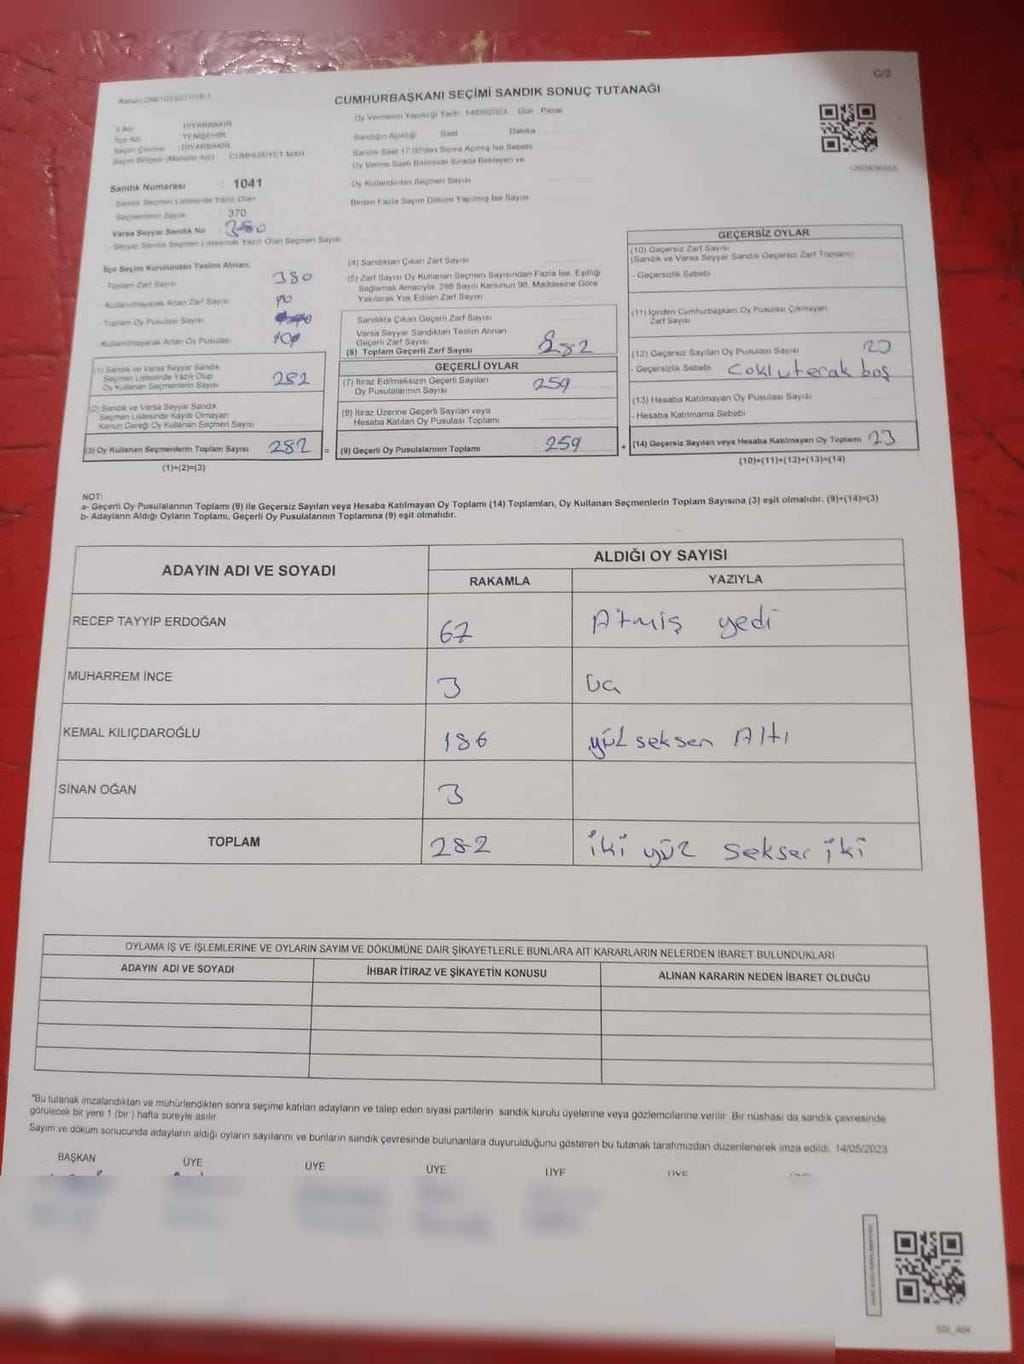 C/2
CUMHURBAŞKANI SEÇİMİ SANDIK SONUÇ TUTANAĞI
Oy Vermenin Yapıldığı Tarih 14/05/2023 Gün Pazar
İl Adı DİYARBAKIR
İlçe Adı YENİŞEHİR
Seçim Çevresi DİYARBAKIR
Seçim Bölgesi (Mahalle Adı) CUMHURİYET MAH.
Sandığın Açıldığı Saat Dakika
Sandık Saat 17.00'den Sonra Açılmış İse Sebebi
Oy Verme Saati Bitiminde Sırada Bekleyen ve
Oy Kullandırılan Seçmen Sayısı
Birden Fazla Sayım Döküm Yapılmış İse Sayısı
Sandık Numarası 1041
Sandık Seçmen Listesinde Yazılı Olan
Seçmenlerin Sayısı 370
Varsa Seyyar Sandık No
Seyyar Sandık Seçmen Listesinde Yazılı Olan Seçmen Sayısı
İlçe Seçim Kurulundan Teslim Alınan:
Toplam Zarf Sayısı 380
Kullanılmayarak Artan Zarf Sayısı
Toplam Oy Pusulası Sayısı
Kullanılmayarak Artan Oy Pusulası
(1) Sandık ve Varsa Seyyar Sandık
Seçmen Listesinde Yazılı Olup
Oy Kullanan Seçmenlerin Sayısı 282
(2) Sandık ve Varsa Seyyar Sandık
Seçmen Listesinde Kayıtlı Olmayan
Kanun Gereği Oy Kullanan Seçmen Sayısı
(3) Oy Kullanan Seçmenlerin Toplam Sayısı 282
(1)+(2)=(3)
(4) Sandıktan Çıkan Zarf Sayısı
(5) Zarf Sayısı Oy Kullanan Seçmen Sayısından Fazla İse, Eşitliği
Sağlamak Amacıyla, 298 Sayılı Kanunun 98. Maddesine Göre
Yakılarak Yok Edilen Zarf Sayısı
Sandıkta Çıkan Geçerli Zarf Sayısı
Varsa Seyyar Sandıktan Teslim Alınan
Geçerli Zarf Sayısı
(6) Toplam Geçerli Zarf Sayısı 282
GEÇERLİ OYLAR
(7) İtiraz Edilmeksizin Geçerli Sayılan
Oy Pusulalarının Sayısı 259
(8) İtiraz Üzerine Geçerli Sayılan veya
Hesaba Katılan Oy Pusulası Toplamı
= (9) Geçerli Oy Pusulalarının Toplamı 259
GEÇERSİZ OYLAR
(10) Geçersiz Zarf Sayısı
(Sandık ve Varsa Seyyar Sandık Geçersiz Zarf Toplamı)
- Geçersizlik Sebebi
(11) İçinden Cumhurbaşkanı Oy Pusulası Çıkmayan
Zarf Sayısı
(12) Geçersiz Sayılan Oy Pusulası Sayısı 23
- Geçersizlik Sebebi boş
(13) Hesaba Katılmayan Oy Pusulası Sayısı
- Hesaba Katılmama Sebebi
+ (14) Geçersiz Sayılan veya Hesaba Katılmayan Oy Toplamı 23
(10)+(11)+(12)+(13)=(14)
NOT:
a- Geçerli Oy Pusulalarının Toplamı (9) ile Geçersiz Sayılan veya Hesaba Katılmayan Oy Toplamı (14) Toplamları, Oy Kullanan Seçmenlerin Toplam Sayısına (3) eşit olmalıdır. (9)+(14)=(3)
b- Adayların Aldığı Oyların Toplamı, Geçerli Oy Pusulalarının Toplamına (9) eşit olmalıdır.
ADAYIN ADI VE SOYADI
ALDIĞI OY SAYISI
RAKAMLA YAZIYLA
RECEP TAYYİP ERDOĞAN 67 Atmış yedi
MUHARREM İNCE 3
KEMAL KILIÇDAROĞLU 186 yüz seksen Altı
SİNAN OĞAN 3
TOPLAM 282 iki yüz seksen iki
OYLAMA İŞ VE İŞLEMLERİNE VE OYLARIN SAYIM VE DÖKÜMÜNE DAİR ŞİKAYETLERLE BUNLARA AİT KARARLARIN NELERDEN İBARET BULUNDUKLARI
ADAYIN ADI VE SOYADI İHBAR İTİRAZ VE ŞİKAYETİN KONUSU ALINAN KARARIN NEDEN İBARET OLDUĞU
*Bu tutanak imzalandıktan ve mühürlendikten sonra seçime katılan adayların ve talep eden siyasi partilerin sandık kurulu üyelerine veya gözlemcilerine verilir. Bir nüshası da sandık çevresinde
görülecek bir yere 1 (bir) hafta süreyle asılır.
Sayım ve döküm sonucunda adayların aldığı oyların sayılarını ve bunların sandık çevresinde bulunanlara duyurulduğunu gösteren bu tutanak tarafımızdan düzenlenerek imza edildi. 14/05/2023
BAŞKAN ÜYE ÜYE ÜYE ÜYE